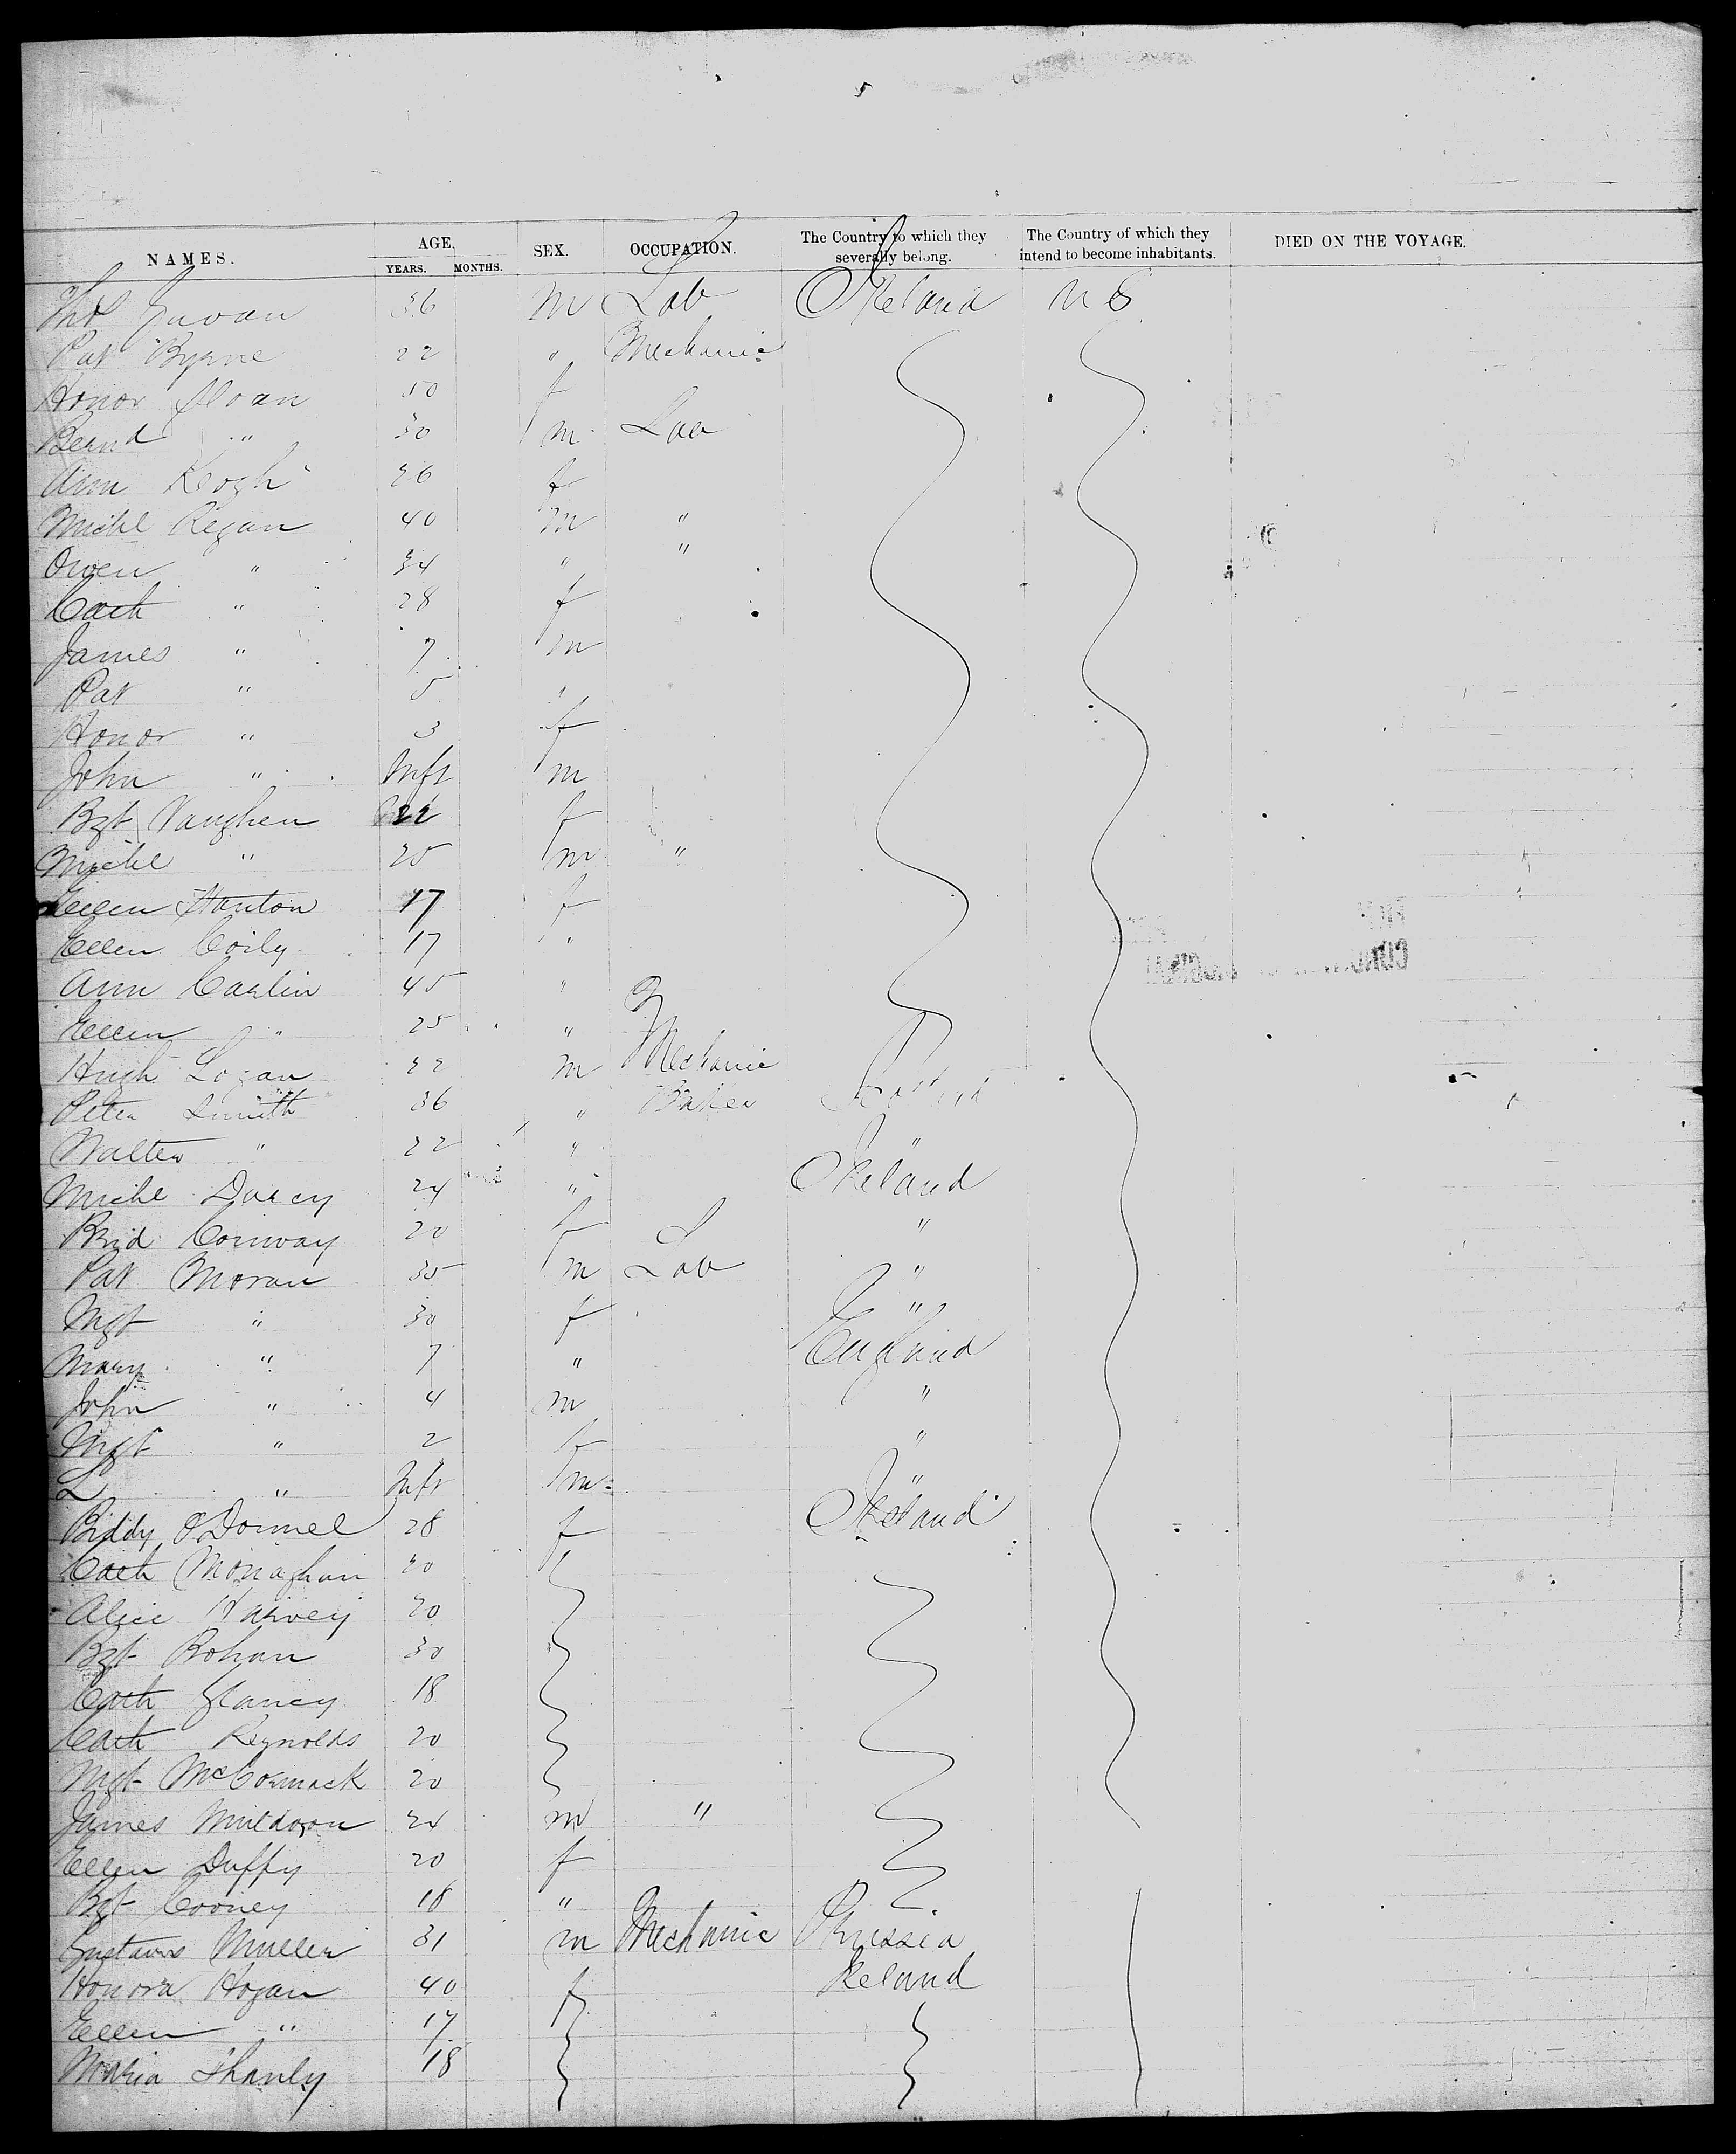 5
NAMES. AGE, YEARS. MONTHS. SEX. OCCUPATION. The Country to which they severally belong. The Country of which they intend to become inhabitants. DIED ON THE VOYAGE.
Thos Gavan 36 m Lab Ireland U S
Pat Byrne 22 " Mechanic
Honor Sloan 50 f
Bernd " 30 m Lab
Ann Keogh 26 f
Michl Regan 40 m "
Owen " 34 " "
Cath " 28 f
James " 7 m
Pat " 5 "
Honor " 3 f
John " Inft m
Bgt Vaughen 22 f
Michl " 25 m "
Ellen Stanton 17 f
Ellen Coily 17 "
Ann Carlin 45 "
Ellen " 25 "
Hugh Logan 22 m Mechanic
Peter Smith 36 " Baker Scotland
Walter " 22 " "
Michl Darcy 24 " Ireland
Brid Conway 20 f "
Pat Moran 35 m Lab "
Mgt " 30 f "
Mary " 7 " England
John " 4 m "
Mgt " 2 f "
L " Inft m "
Biddy O'Donnel 28 f Ireland
Cath Monaghan 30 "
Alice Harvey 20
Bgt Bohan 30
Cath Glancy 18
Cath Reynolds 20
Mgt McCormack 20
James Muldoon 24 m "
Ellen Duffy 20 f
Bgt Cooney 18 "
Gustavus Muller 31 m Mechanic Prussia
Honora Hogan 40 f Ireland
Ellen " 17
Maria Shanly 18